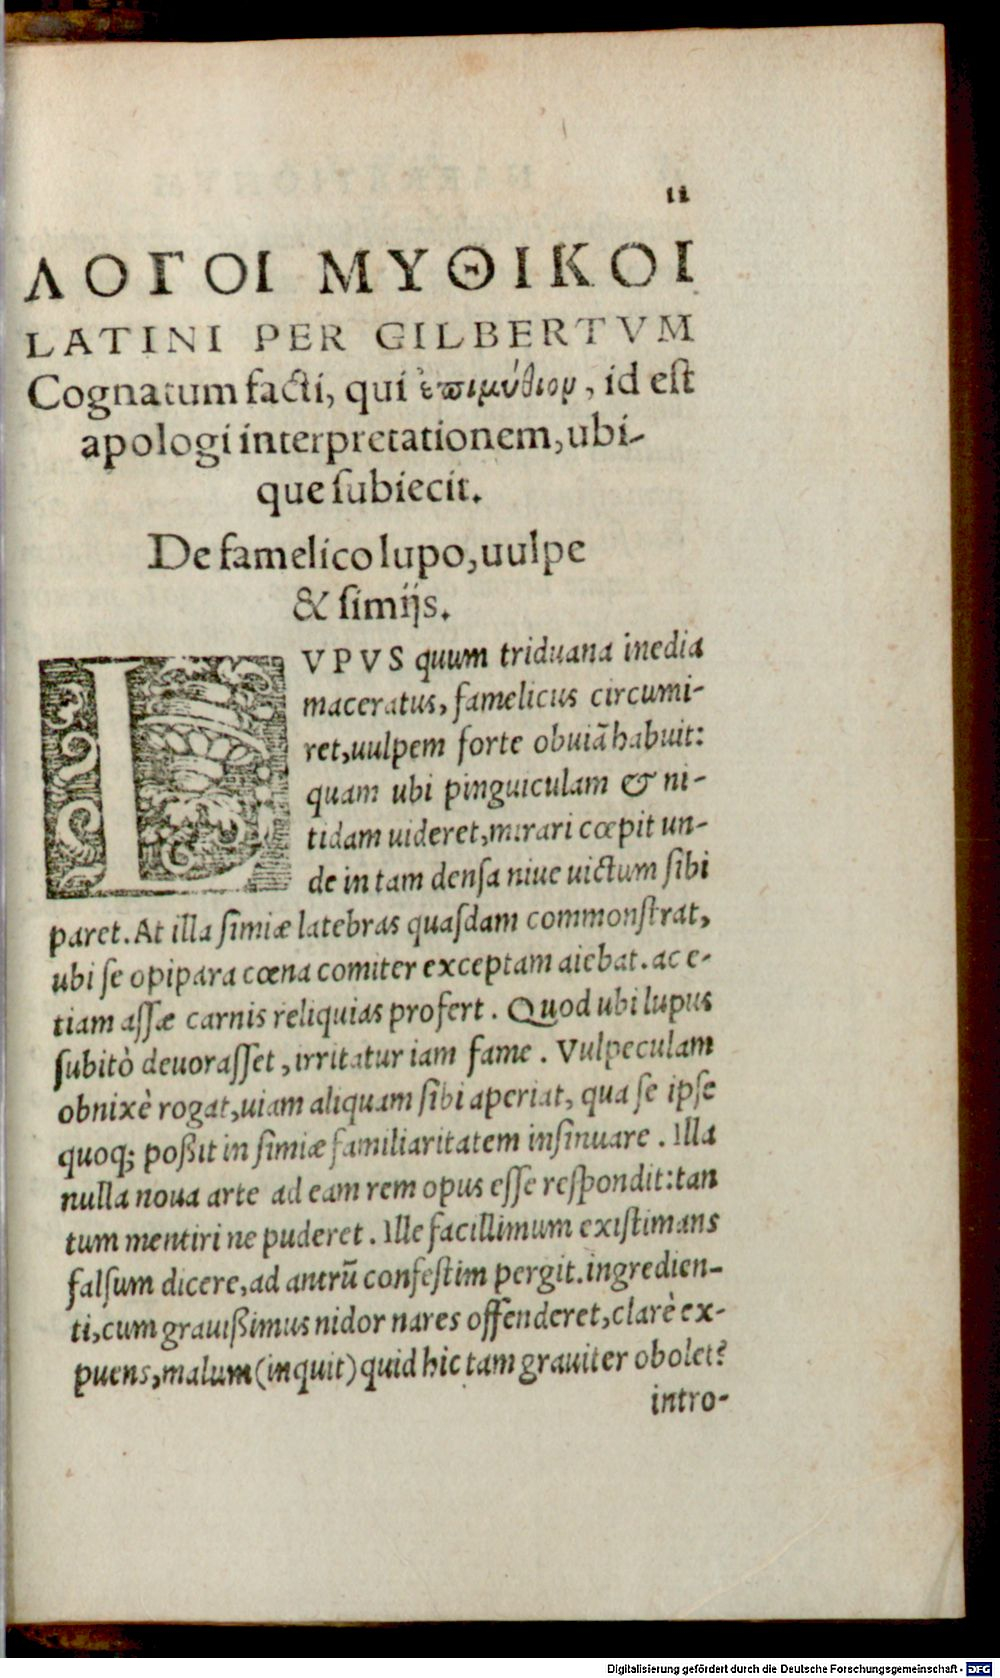 11
ΛΟΓΟΙ ΜΥΘΙΚΟΙ
LATINI PER GILBERTVM
Cognatum facti, qui ἐπιμύθιον, id est
apologi interpretationem, ubi-
que subiecit.
De famelico lupo, uulpe
& simijs.
LVPVS quum triduana inedia
maceratus, famelicus circumi-
ret, uulpem forte obuiã habuit:
quam ubi pinguiculam & ni-
tidam uideret, mirari cœpit un-
de in tam densa niue uictum sibi
paret. At illa simiæ latebras quasdam commonstrat,
ubi se opipara cœna comiter exceptam aiebat. ac e-
tiam assæ carnis reliquias profert. Quod ubi lupus
subitò deuorasset, irritatur iam fame. Vulpeculam
obnixè rogat, uiam aliquam sibi aperiat, qua se ipse
quoq; poßit in simiæ familiaritatem insinuare. Illa
nulla noua arte ad eam rem opus esse respondit: tan
tum mentiri ne puderet. Ille facillimum existimans
falsum dicere, ad antrũ confestim pergit. ingredien-
ti, cum grauißimus nidor nares offenderet, clarè ex-
puens, malum (inquit) quid hic tam grauiter obolet?
intro-
Digitalisierung gefördert durch die Deutsche Forschungsgemeinschaft - DFG